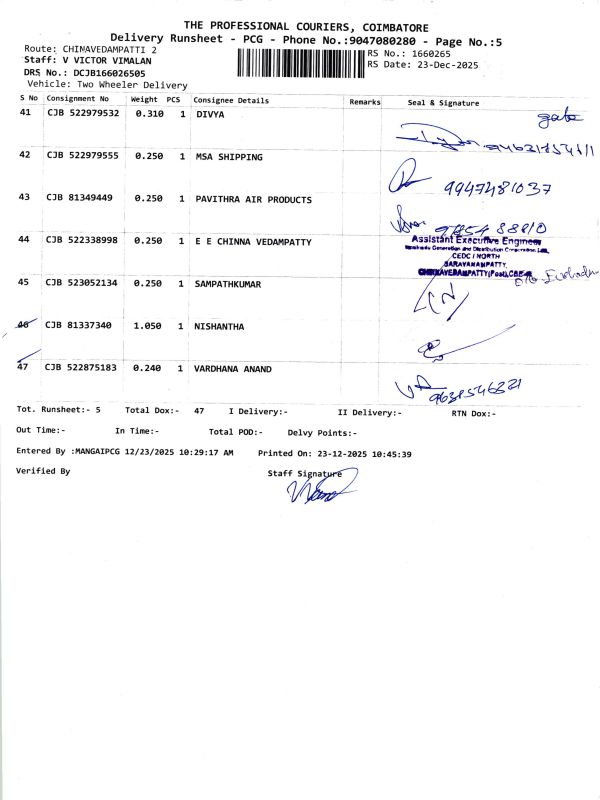 THE PROFESSIONAL COURIERS, COIMBATORE
Delivery Runsheet - PCG - Phone No.:9047080280 - Page No.:5
Route: CHIMAVEDAMPATTI 2
Staff: V VICTOR VIMALAN
DRS No.: DCJB166026505
Vehicle: Two Wheeler Delivery
RS No.: 1660265
RS Date: 23-Dec-2025
S No Consignment No Weight PCS Consignee Details Remarks Seal & Signature
41 CJB 522979532 0.310 1 DIVYA
42 CJB 522979555 0.250 1 MSA SHIPPING
9947481037
43 CJB 81349449 0.250 1 PAVITHRA AIR PRODUCTS
44 CJB 522338998 0.250 1 E E CHINNA VEDAMPATTY
Assistant Executive Engineer
CEDC / NORTH
SARAVANAMPATTY,
45 CJB 523052134 0.250 1 SAMPATHKUMAR
46 CJB 81337340 1.050 1 NISHANTHA
47 CJB 522875183 0.240 1 VARDHANA ANAND
Tot. Runsheet:- 5 Total Dox:- 47 I Delivery:- II Delivery:- RTN Dox:-
Out Time:- In Time:- Total POD:- Delvy Points:-
Entered By :MANGAIPCG 12/23/2025 10:29:17 AM Printed On: 23-12-2025 10:45:39
Verified By Staff Signature